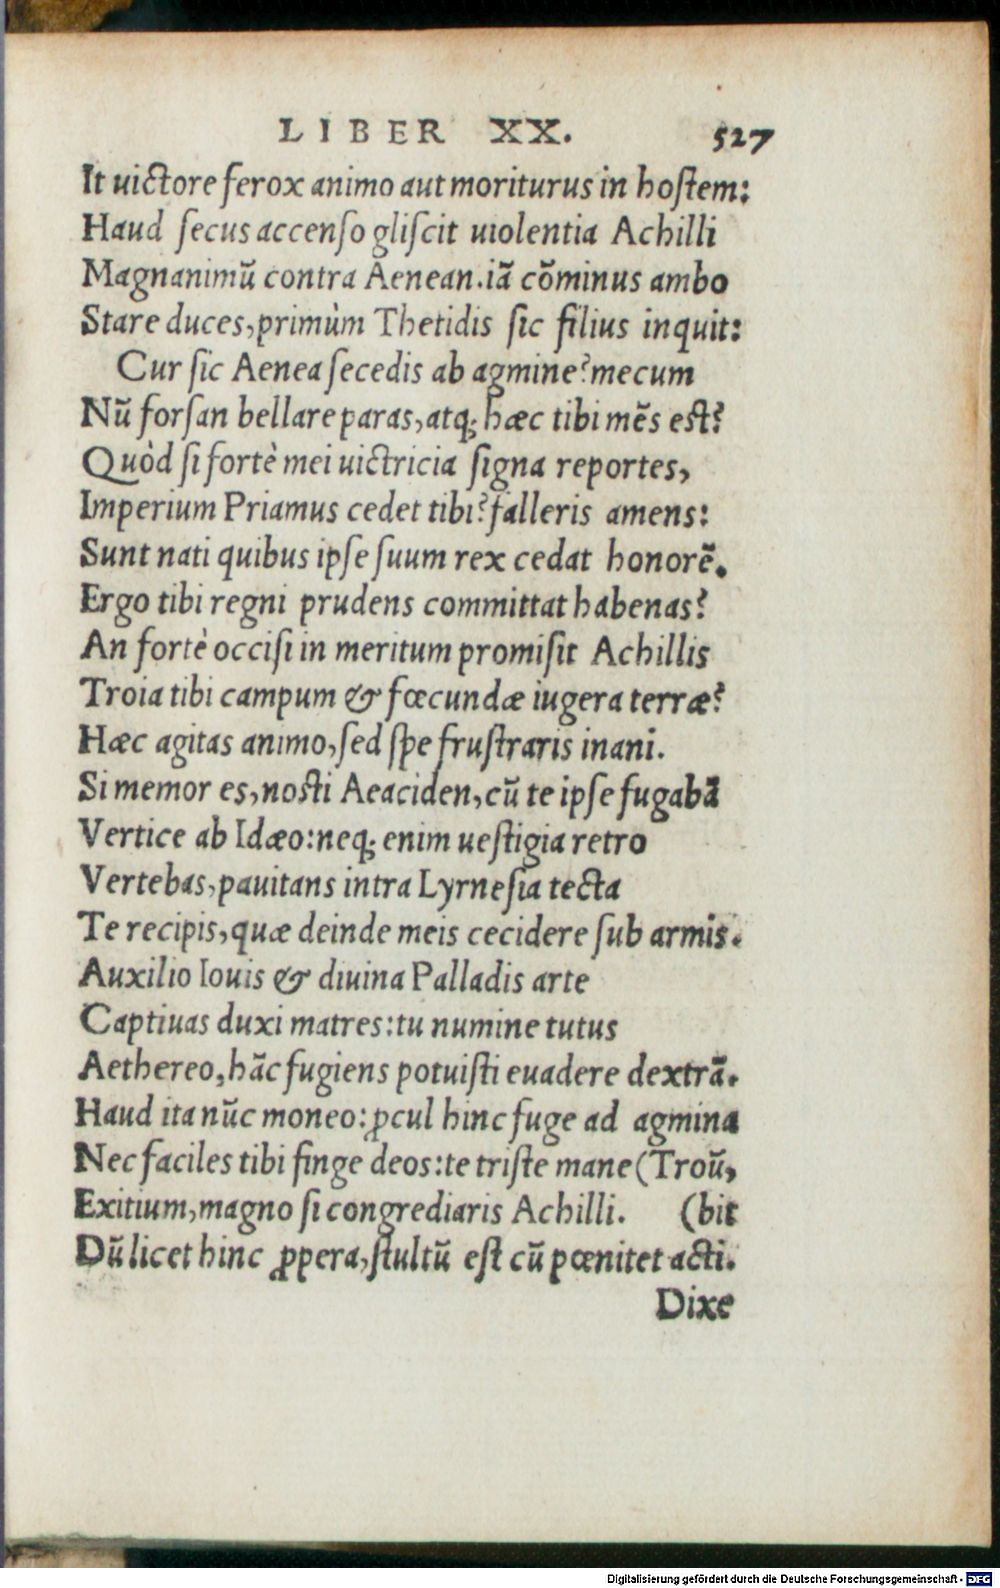 LIBER XX. 527
It uictore ferox animo aut moriturus in hostem:
Haud secus accenso gliscit uiolentia Achilli
Magnanimū contra Aenean. iā cōminus ambo
Stare duces, primùm Thetidis sic filius inquit:
Cur sic Aenea secedis ab agmine? mecum
Nū forsan bellare paras, atq; hæc tibi mēs est?
Quòd si fortè mei uictricia signa reportes,
Imperium Priamus cedet tibi? falleris amens:
Sunt nati quibus ipse suum rex cedat honorē.
Ergo tibi regni prudens committat habenas?
An fortè occisi in meritum promisit Achillis
Troia tibi campum & fœcundæ iugera terræ?
Hæc agitas animo, sed spe frustraris inani.
Si memor es, nosti Aeaciden, cū te ipse fugabā
Vertice ab Idæo: neq; enim uestigia retro
Vertebas, pauitans intra Lyrnesia tecta
Te recipis, quæ deinde meis cecidere sub armis.
Auxilio Iouis & diuina Palladis arte
Captiuas duxi matres: tu numine tutus
Aethereo, hāc fugiens potuisti euadere dextrā.
Haud ita nūc moneo: ꝓcul hinc fuge ad agmina
Nec faciles tibi finge deos: te triste mane (Troū,
Exitium, magno si congrediaris Achilli. (bit
Dū licet hinc ꝓpera, stultū est cū pœnitet acti.
Dixe
Digitalisierung gefördert durch die Deutsche Forschungsgemeinschaft - DFG